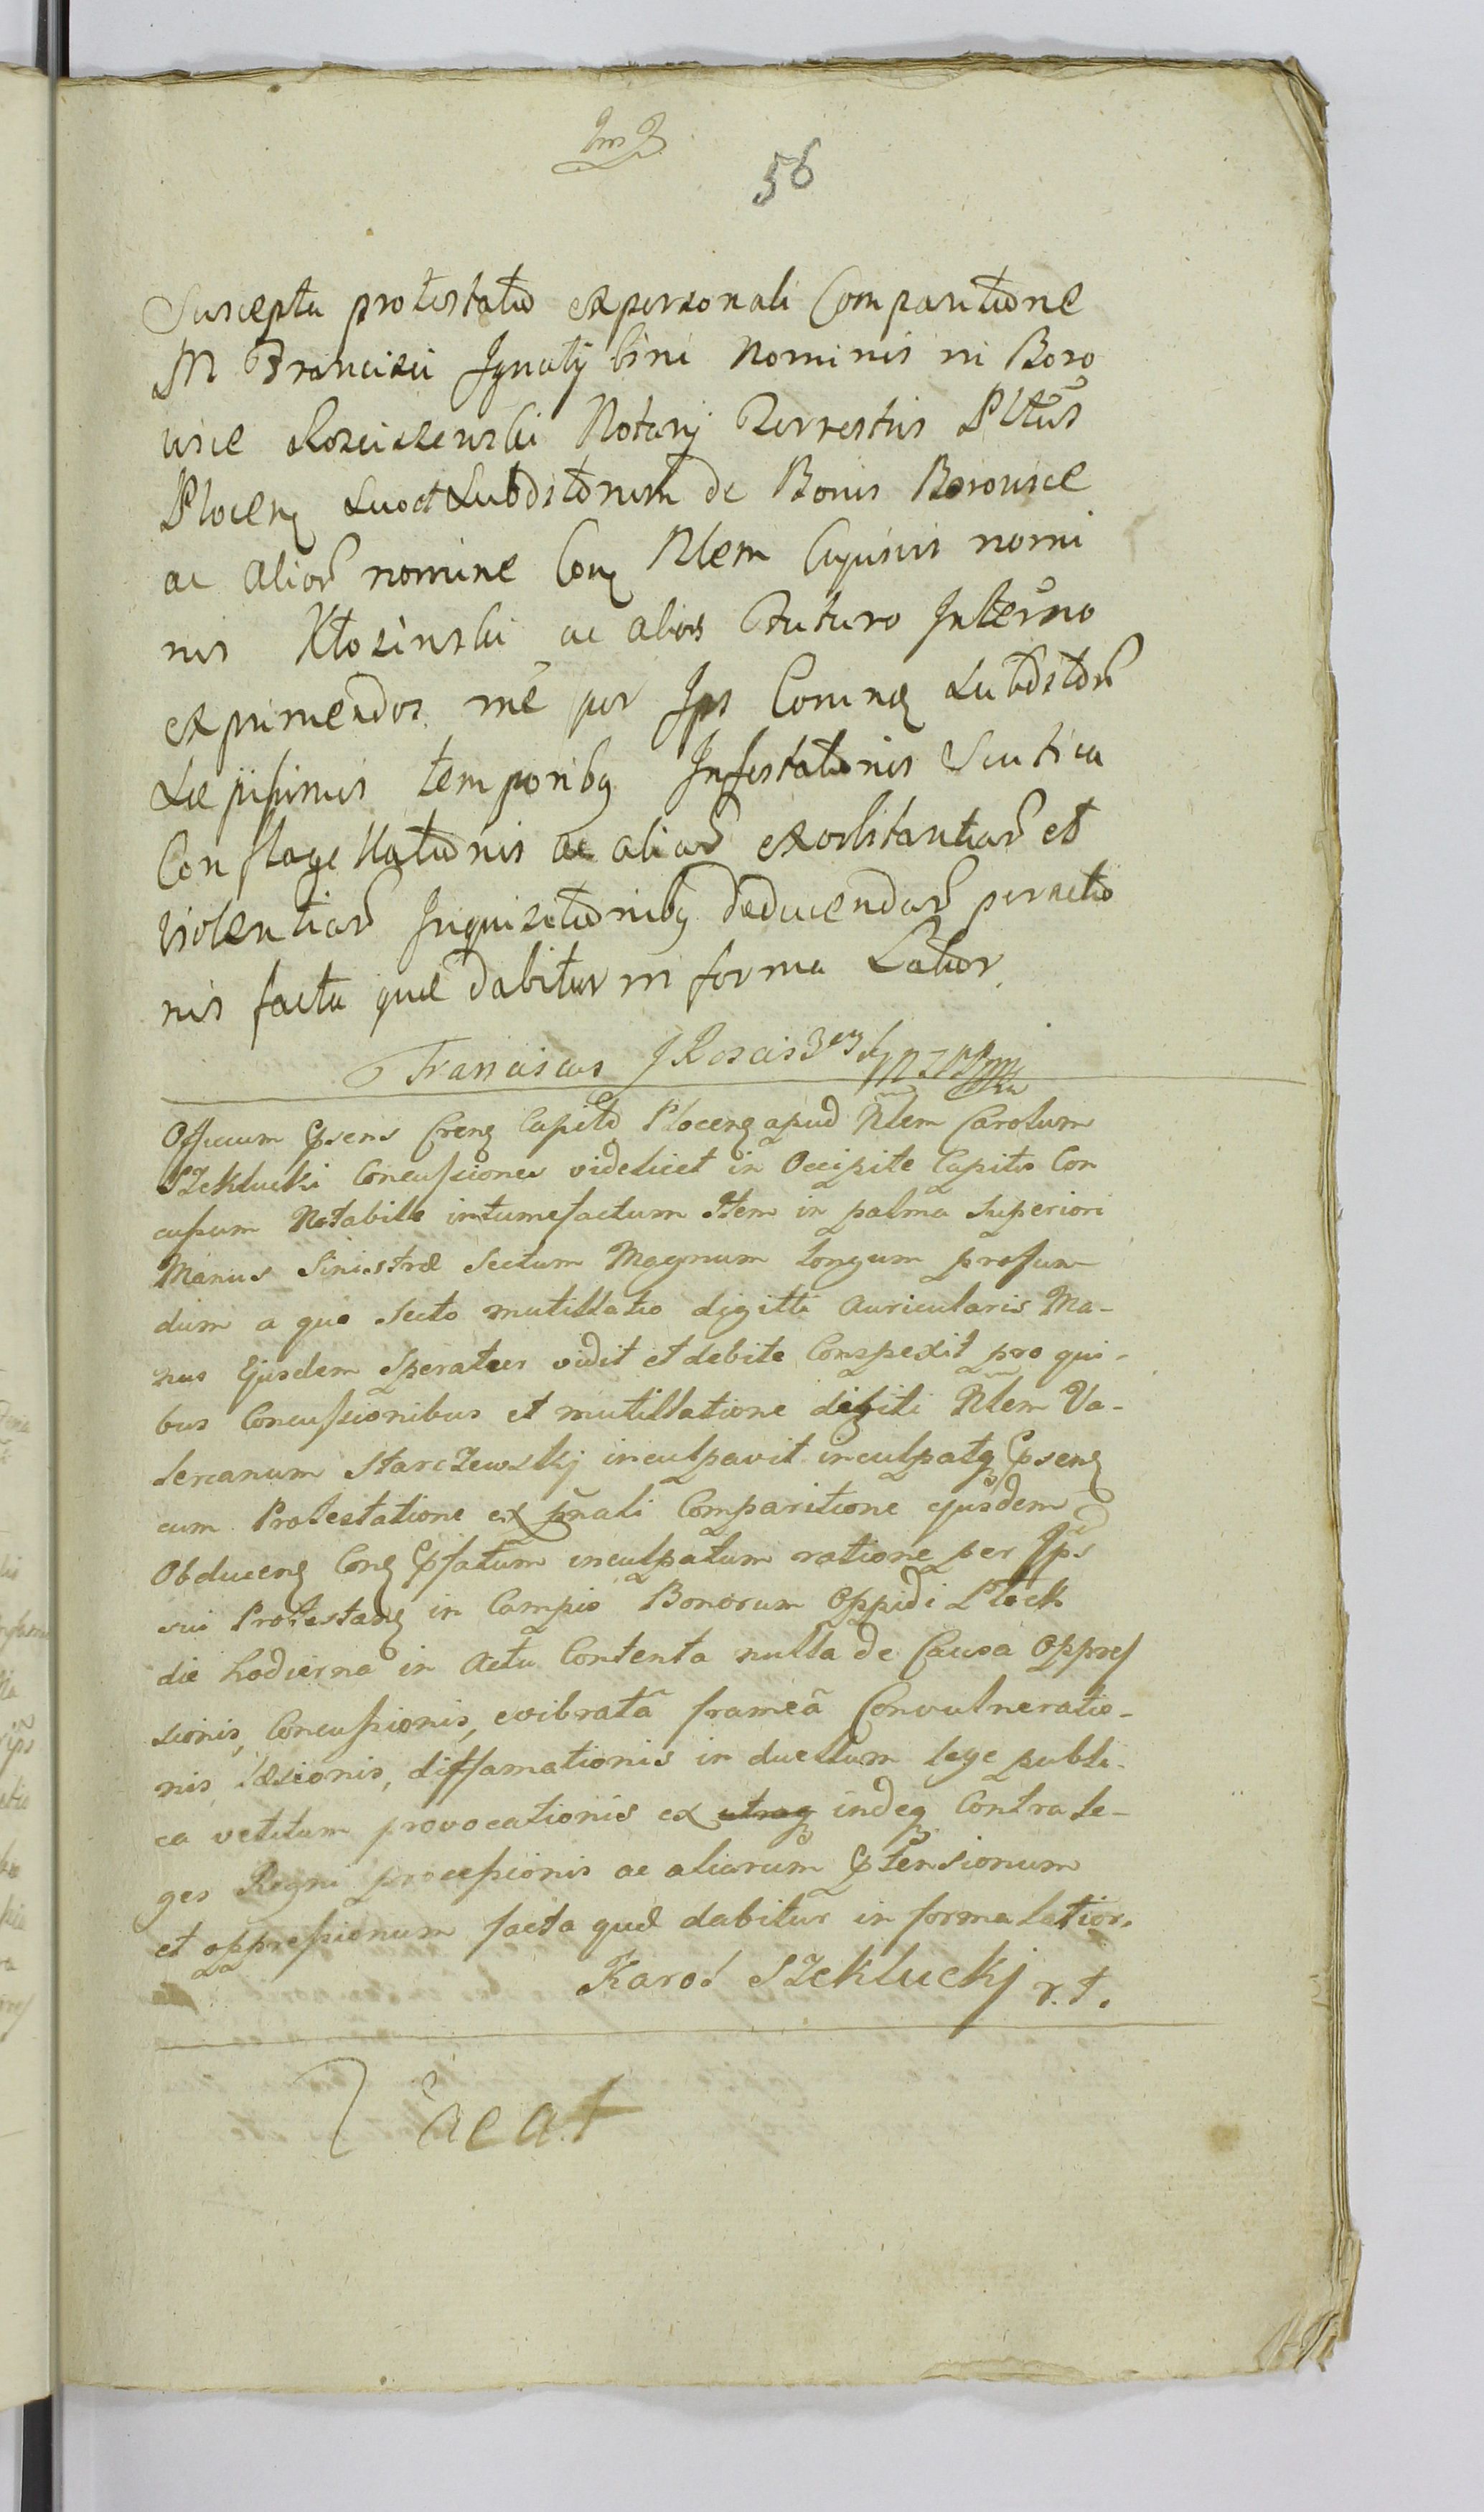 56
Suscepta protestatio ex personali Comparitione
M Francisci Ignatij bini Nominis in Boro
wice Kosciszewski Notarij Terrestris Pltūs
Plocen Suo et Subditorum de Bonis Borowice
ac alior nomine Con Nlem Cujusvis nomi
nis Kłosinski ac alios Futuro Interno
exprimendos me per Ips Coming Subditor
Sæpissimis temporibq Infestationis Scutica
Conflagellationis ac aliar exorbitantiar et
violentiar Inquisitionibq deducendar peractio
nis facta quæ dabitur in forma Latior
Franciscus J Kosciszews
Officium Psens Cren Capitl Plocen apud Nlem Carolum
Szeklucki Concussiones videlicet in Occipite Capitis Con
cussum Notabile intumefactum Item in palma Superiori
Manus Sinistræ Sectum Magnum longum profun-
dum a quo Secto mutillatio digitti Auricularis Ma-
nus Ejusdem Speratur vidit et debite Conspexit pro qui-
bus Concussionibus et mutillatione digiti Nlem Va-
lereanum Starczewskj inculpavit inculpatq Psens
cum Protestatione ex pnali Comparitione ejusdem
Obducen Con Pfatum inculpatum ratione per Ips
sui Protestan in Campis Bonorum Oppidi Płock
die hodierna in Actu Contenta nulla de Causa Oppres
sionis, Concussionis, evibratã frameã Convulneratio-
nis læsionis, diffamationis in duellum lege publi-
ca vetitum provocationis ex utraq indeq Contra Le-
ges Regni processionis ac aliarum Ptensionum
et oppressionum facta quæ dabitur in forma latior.
Karol Szekluckj r. t.
Vacat